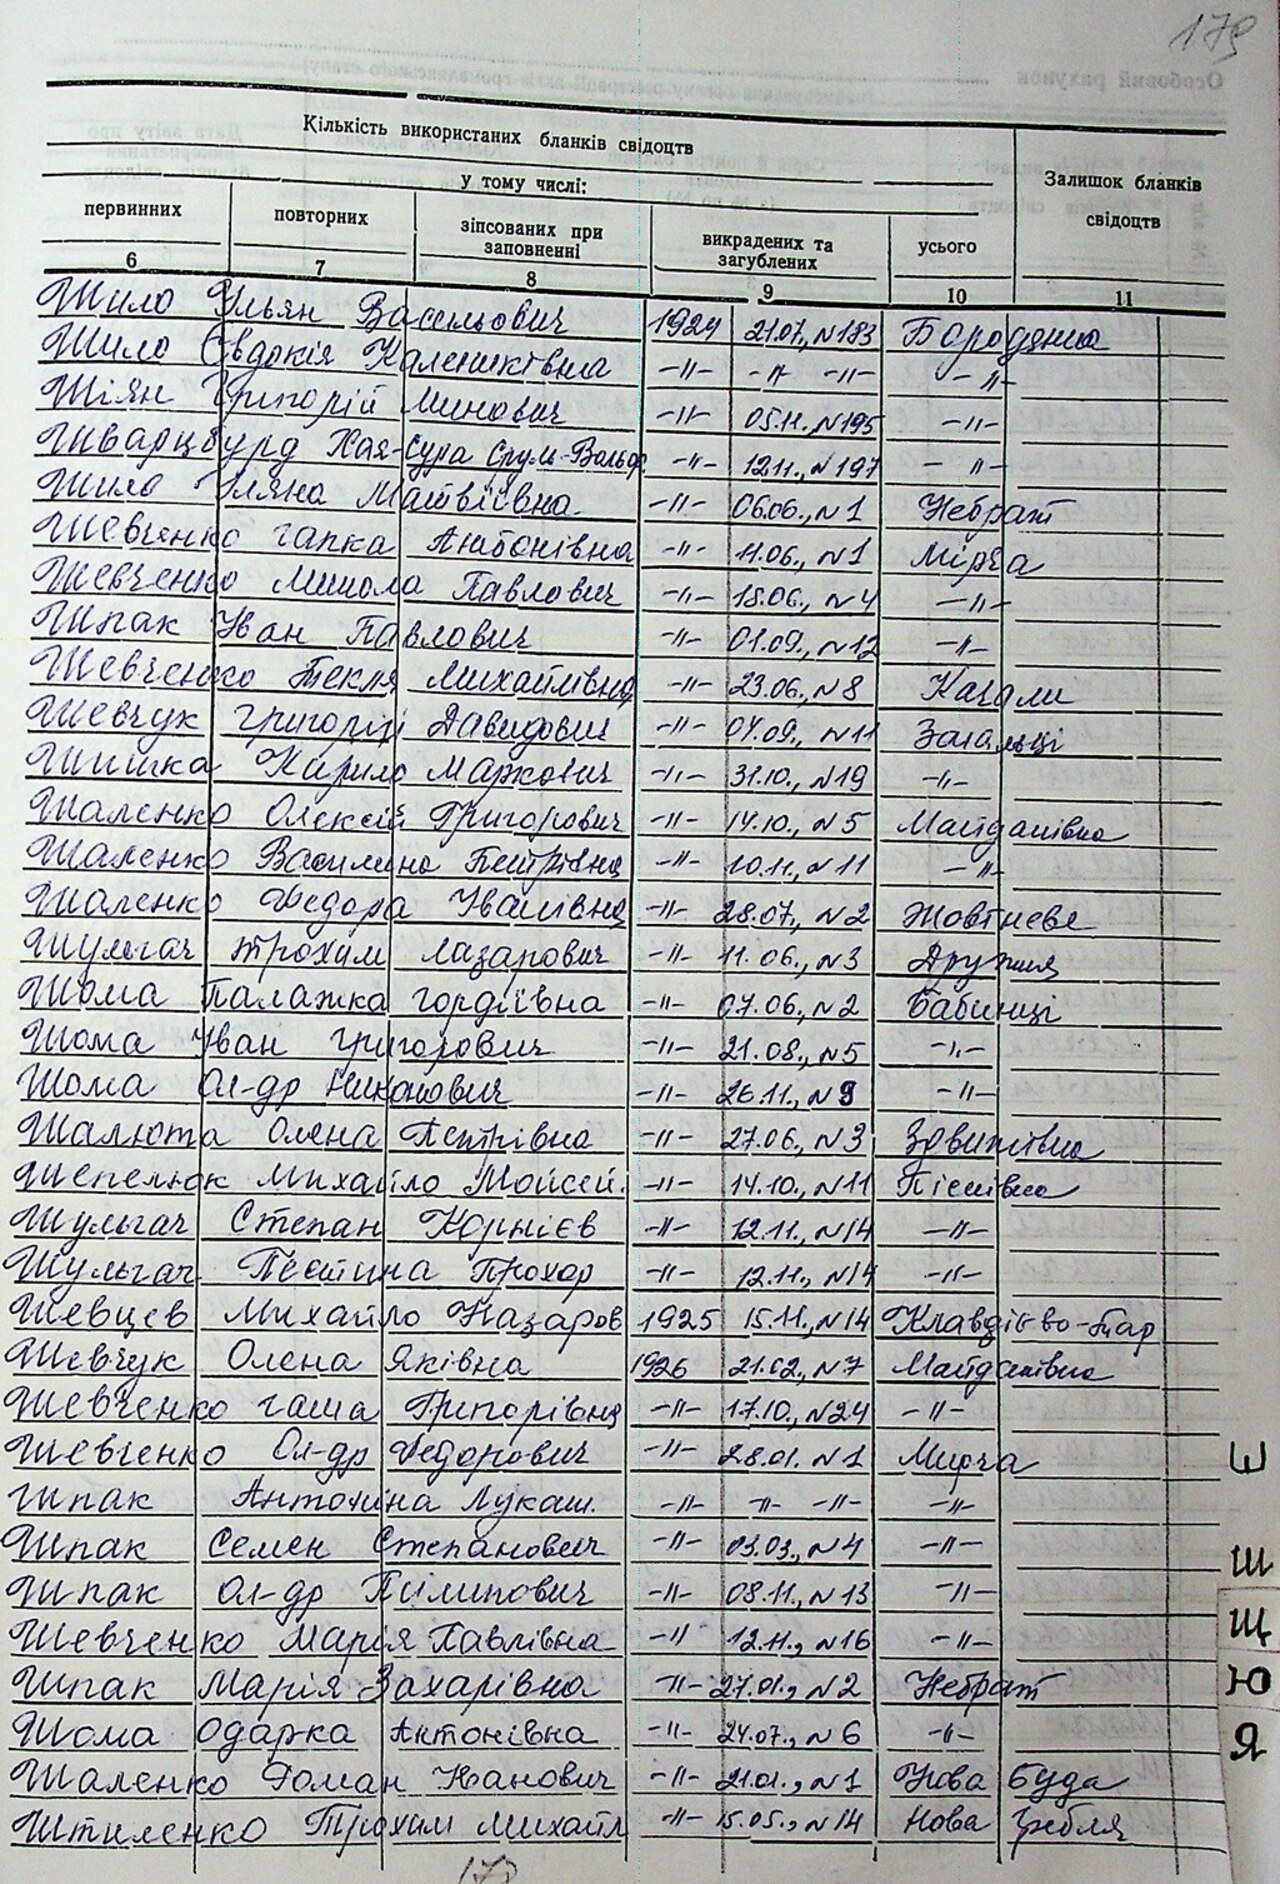 179
Кількість використаних бланків свідоцтв
у тому числі:
Залишок бланків свідоцтв
первинних повторних зіпсованих при заповненні викрадених та загублених усього
6 7 8 9 10 11
Шило Ульян Васильович 1924 21.07., N183 Бородянка
Шило Євдокія Калениківна -"- -"- -"- -"-
Шіян Григорій Минович -"- 05.11., N195 -"-
Шварцбурд Хая-Сура Сруль-Вольф. -"- 12.11., N197 -"-
Шило Уляна Матвіївна -"- 06.06., N1 Небрат
Шевченко Гапка Антонівна -"- 11.06., N1 Мірча
Шевченко Микола Павлович -"- 18.06., N4 -"-
Шпак Іван Павлович -"- 01.09., N12 -"-
Шевченко Текля Михайлівна -"- 23.06., N8 Качали
Шевчук Григорій Давидович -"- 04.09., N11 Загальці
Шишка Кирило Маркович -"- 31.10., N19 -"-
Шаленко Олексій Григорович -"- 14.10., N5 Майданівка
Шаленко Василина Петрівна -"- 10.11., N11 -"-
Шаленко Федора Іванівна -"- 28.07., N2 Жовтневе
Шульгач Трохим Лазарович -"- 11.06., N3 Дружня
Шома Палажка Гордіївна -"- 07.06., N2 Бабинці
Шома Іван Григорович -"- 21.08., N5 -"-
Шома Ол-др Никонович -"- 26.11., N9 -"-
Шалюта Олена Петрівна -"- 27.06., N3 Здвижівка
Шепелюк Михайло Мойсей. -"- 14.10., N11 Пісківка
Шульгач Степан Корнієв -"- 12.11., N14 -"-
Шульгач Пестина Прохор -"- 12.11., N14 -"-
Шевцев Михайло Назаров 1925 15.11., N14 Клавдієво-Тар
Шевчук Олена Яківна 1926 21.02., N7 Майданівка
Шевченко Гаша Григорівна -"- 17.10., N24 -"-
Шевченко Ол-др Федорович -"- 28.01. N1 Мирча
Шпак Антоніна Лукаш. -"- -"- -"- -"-
Шпак Семен Степанович -"- 03.03., N4 -"-
Шпак Ол-др Пилипович -"- 08.11., N13 -"-
Шевченко Марія Павлівна -"- 12.11., N16 -"-
Шпак Марія Захарівна -"- 27.01., N2 Небрат
Шома Одарка Антонівна -"- 24.07., N6 -"-
Шаленко Роман Іванович -"- 21.01., N1 Нова Буда
Штиленко Трохим Михайл -"- 15.05., N14 Нова Гребля
Ш
Щ
Ю
Я